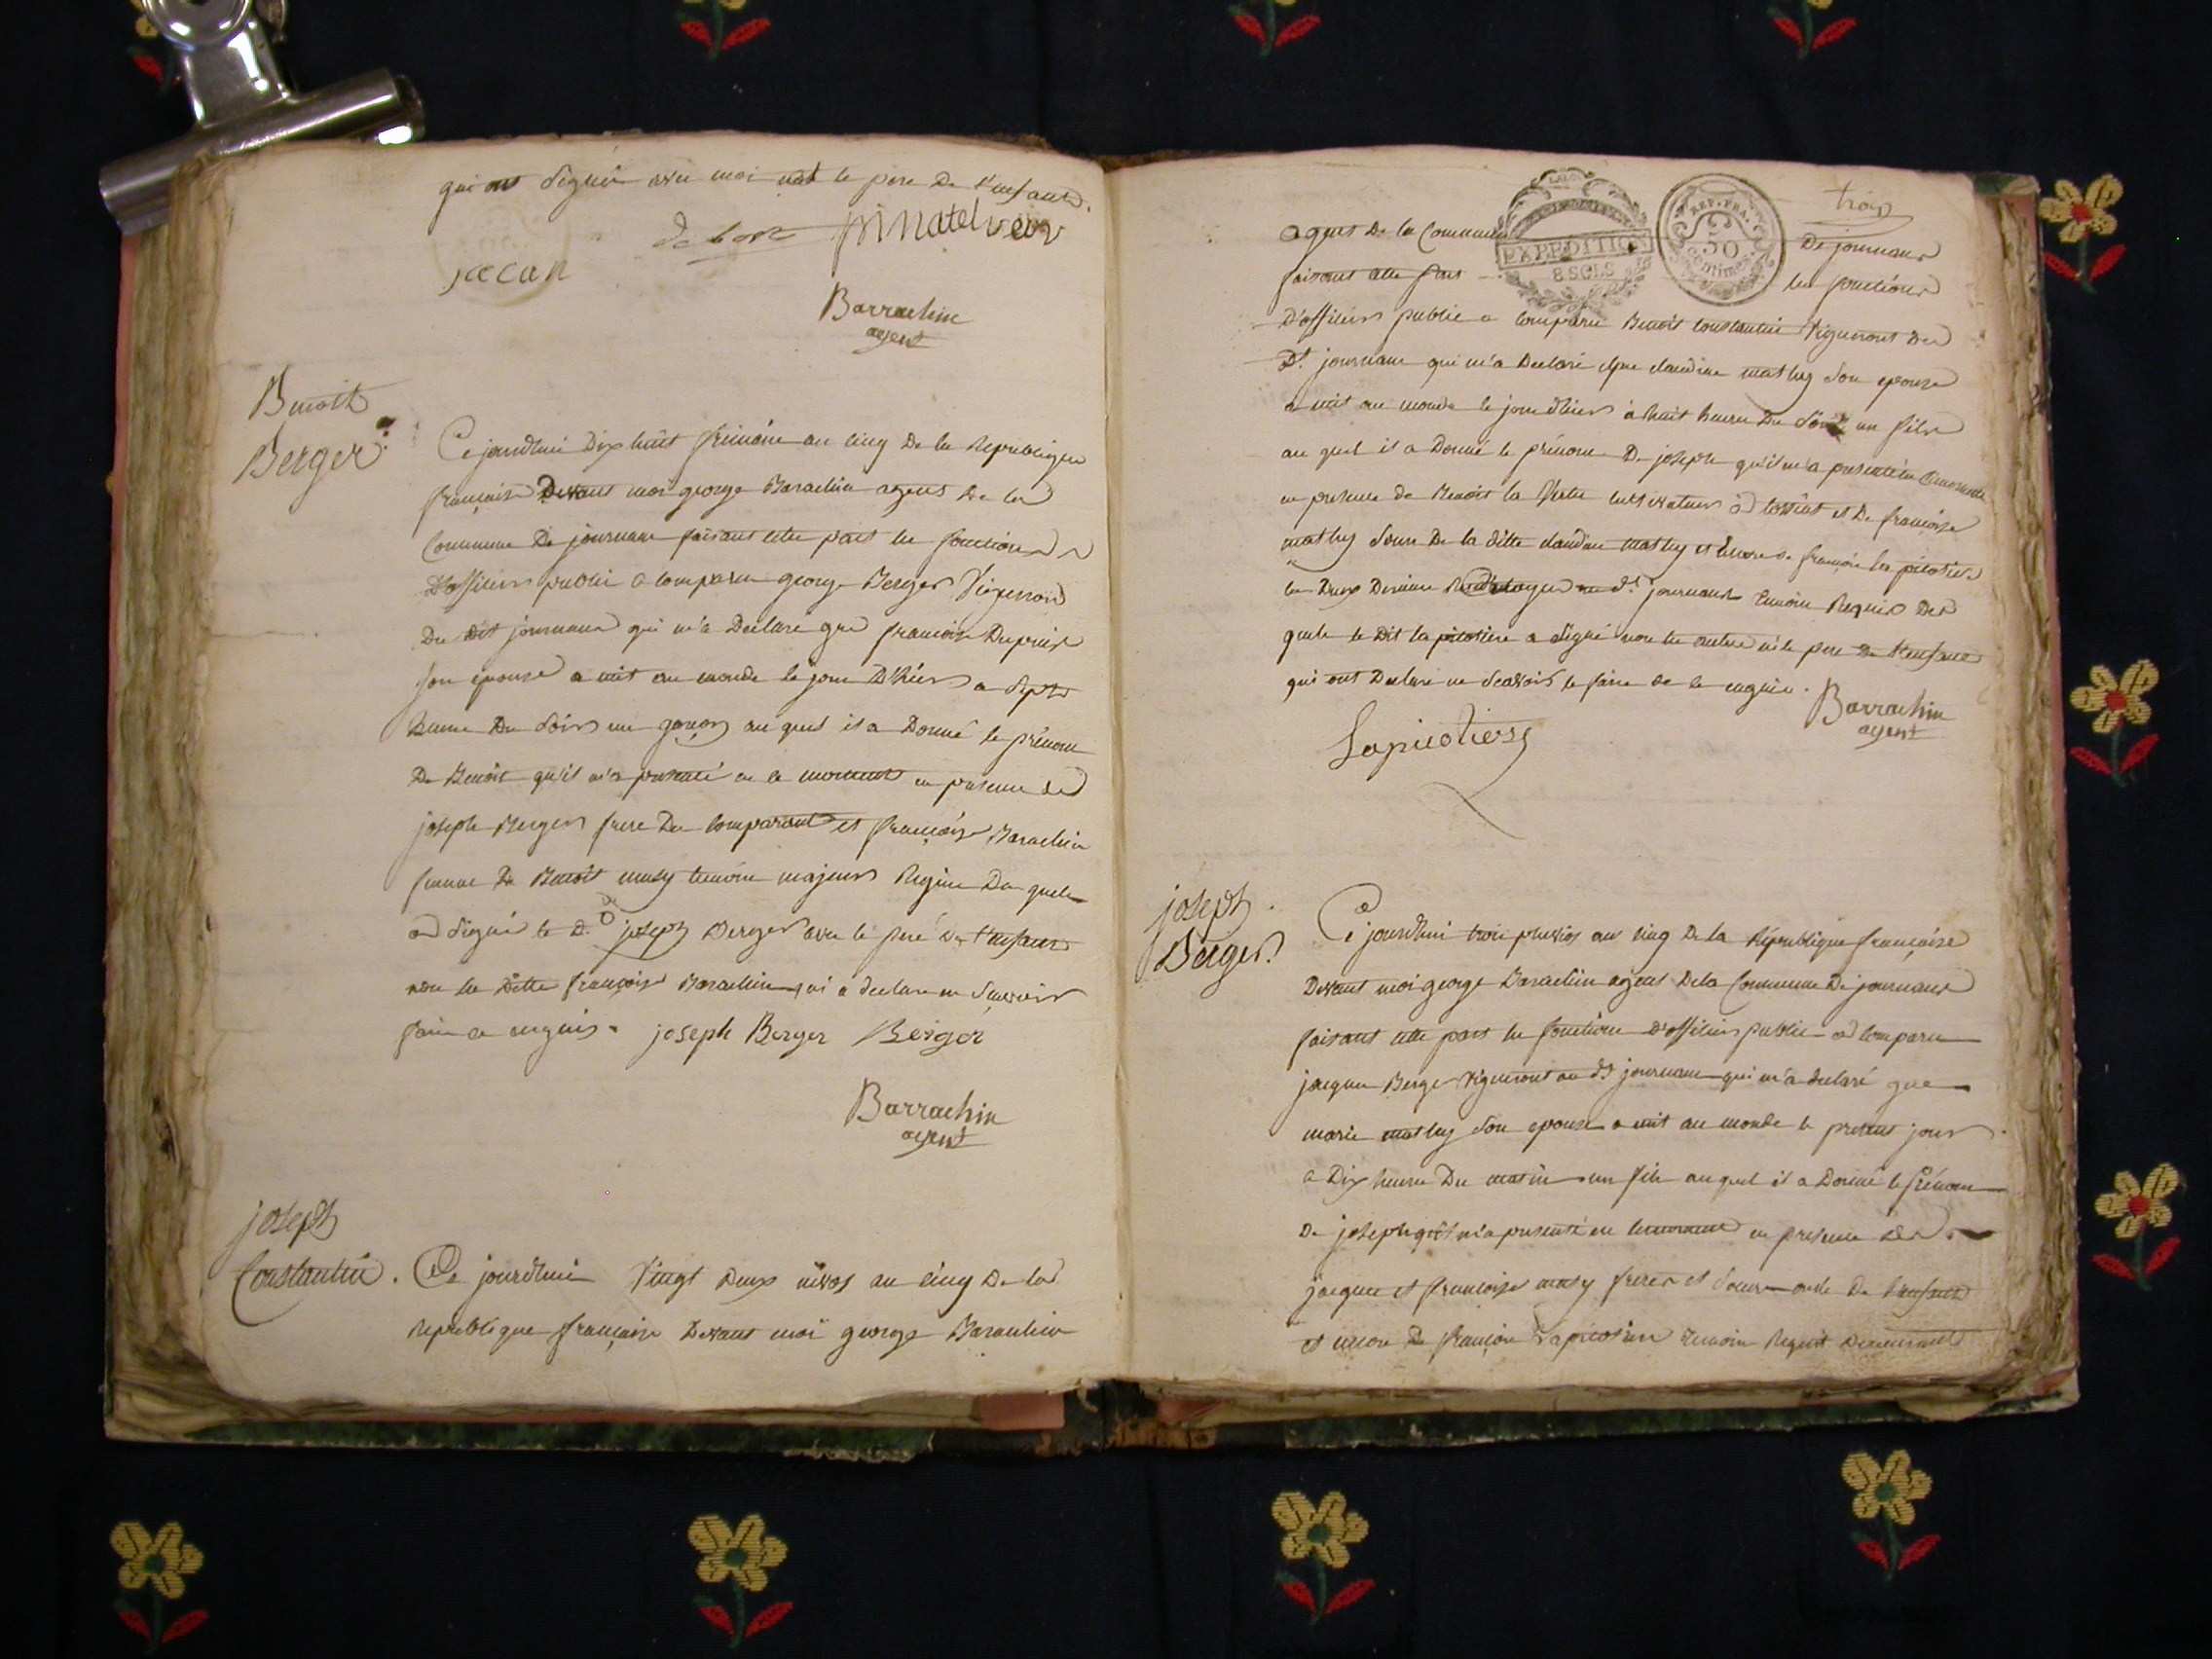 qui ont signé avec moi et le pere De l'enfant.
debost pinatelvew
jacan
Barrachin
agent
Benoit
Berger.
Ce jourdhui Dix huit frimaire an cinq De la Republique
française Devant moi george Barachin agent De la
Commune De journant faisant cette part les fonctions
D'officier public a comparu george Berger Vigneron
Du dit journant qui m'a Declare que francoise Dupuis
son epouse a mit au monde le jour D'hier a sept
heure Du soir un garçon au quel il a Donné le prénom
De Benoit qu'il m'a presenté en ce moment en presence de
joseph Berger frere Du Comparant et françoise Barachin
femme De Benoit temoin majeur Requis Du quels
a signé le d. joseph Berger avec le peré De l'enfant
non la ditte françoise Barachin qui a declare ne scavoir
faire de enquis. joseph Berger Berger
Barrachin
agent
joseph
Constantin.
Ce jourdhui Vingt Deux nivos an cinq De la
Republique française Devant moi george Barachin
trois
agent De la Commune De journant
faisant cette part les fonctions
EXPEDITION
8 SOLS
REP. FRA.
50
centimes
D'officier public a comparu Benoit Constantin Vigneront du
dt. journant qui m'a Declaré que claudine mathy son epouse
a mit au monde le jour d'hier à huit heure Du soir un fils
au quel il a Donné le prénom De joseph qu'il m'a presenté en ce moment
en presence de Benoit la Vertu cultivateur a et De françoise
mathy soeur De la ditte claudine mathy et encore De françois la picotiere
les Deux Derniers dt. journant temoin Requis Des
quels le Dit la picotiere a signé non les autres ni le pere De l'enfant
qui ont Declare ne scavoir le faire de ce enquis.
Barrachin
agent
Lapicotiere
joseph
Berger.
Ce jourdhui trois pluvios an cinq De la République française
Devant moi george Barachin agent De la Commune De journant
faisant cette part les fonctions D'officier public a comparu
jacque Berger Vigneront au dt journant qui m'a declaré que
marie mathy son epouse a mit au monde le present jour
a Dix heure Du matin un fils au quel il a Donné le prénom
De joseph qu'il m'a presenté en ce moment en presence de
jacque et françoise maty frere et soeur oncle De l'enfant
et encore De françois Lapicotiere temoin Requit